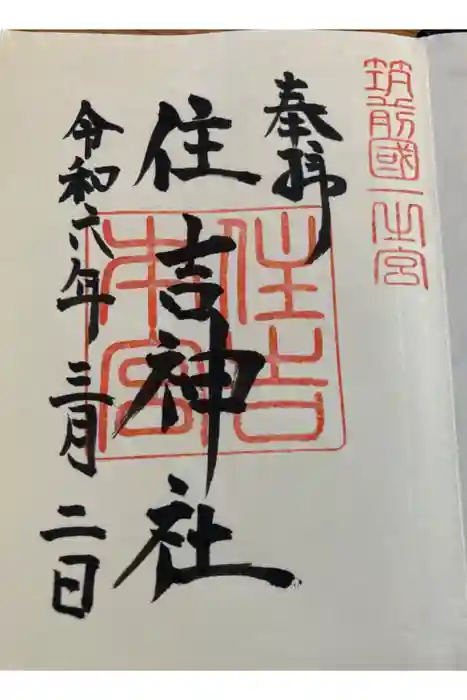 筑前國一之宮
奉拝
住吉神社
住吉本宮
令和六年三月二日